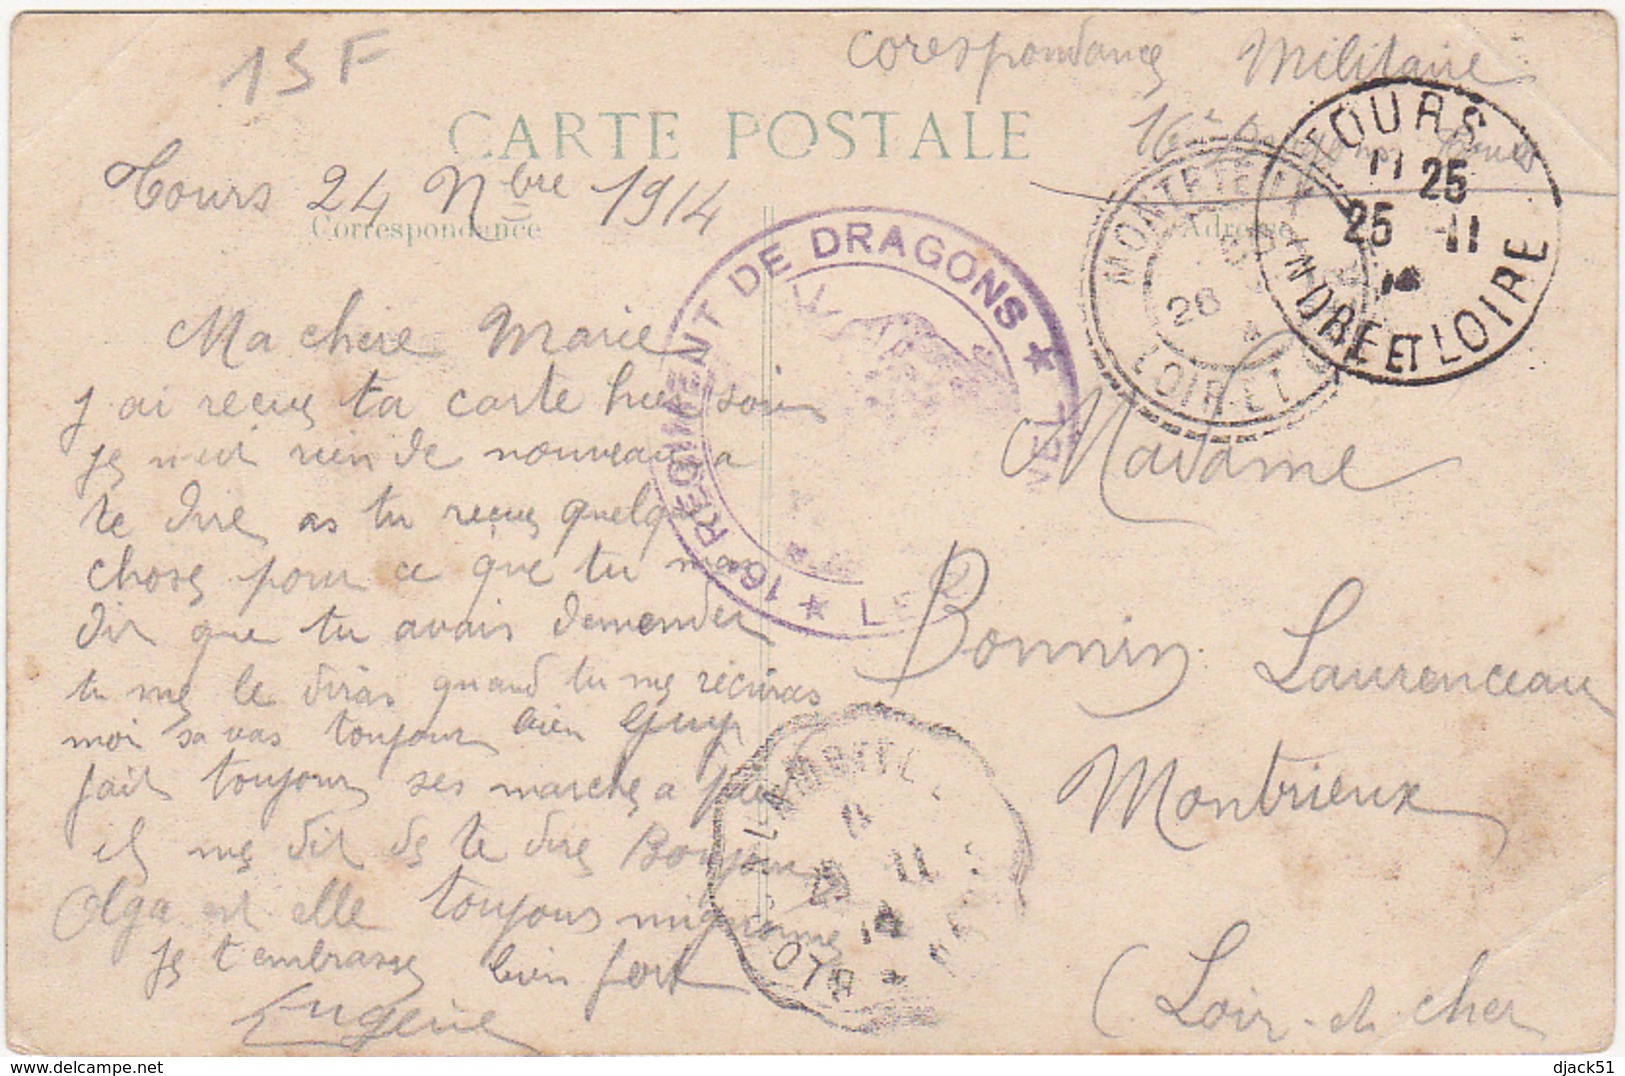 13F
Corespondance Militaire
16e Dragons Tours
CARTE POSTALE
Tours 24 Nbre 1914
Correspondance
Adresse
TOURS
11 25
25 -11
14
INDRE ET LOIRE
MONTRIEUX
26
LOIR-ET-C
16e REGIMENT DE DRAGONS
Ma chere Marie
j ai recue ta carte hier soir
je nait rien de nouveau a
te dire as tu recue quelque
chose pour ce que tu mas
dit que tu avais demender
tu me le diras quand tu me récriras
moi sa vas toujour bien
fait toujours ses marche a pied
il me dit de te dire Bonjour
Olga est elle toujours mignonne
je t embrasse bien fort
Eugène
Madame
Bonnin Laurenceau
Montrieux
(Loir-et-cher
11
14
delcampe.net
djack51